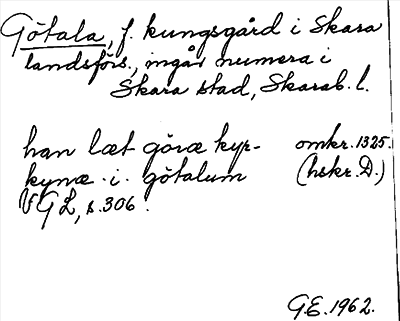 Götala, f. kungsgård i Skara
landsförs., ingår numera i
Skara stad, Skarab. l.
han læt göræ kyr- omkr. 1325.
kynæ · i · götalum (hskr. D.)
VGL, s. 306.
G.E. 1962.